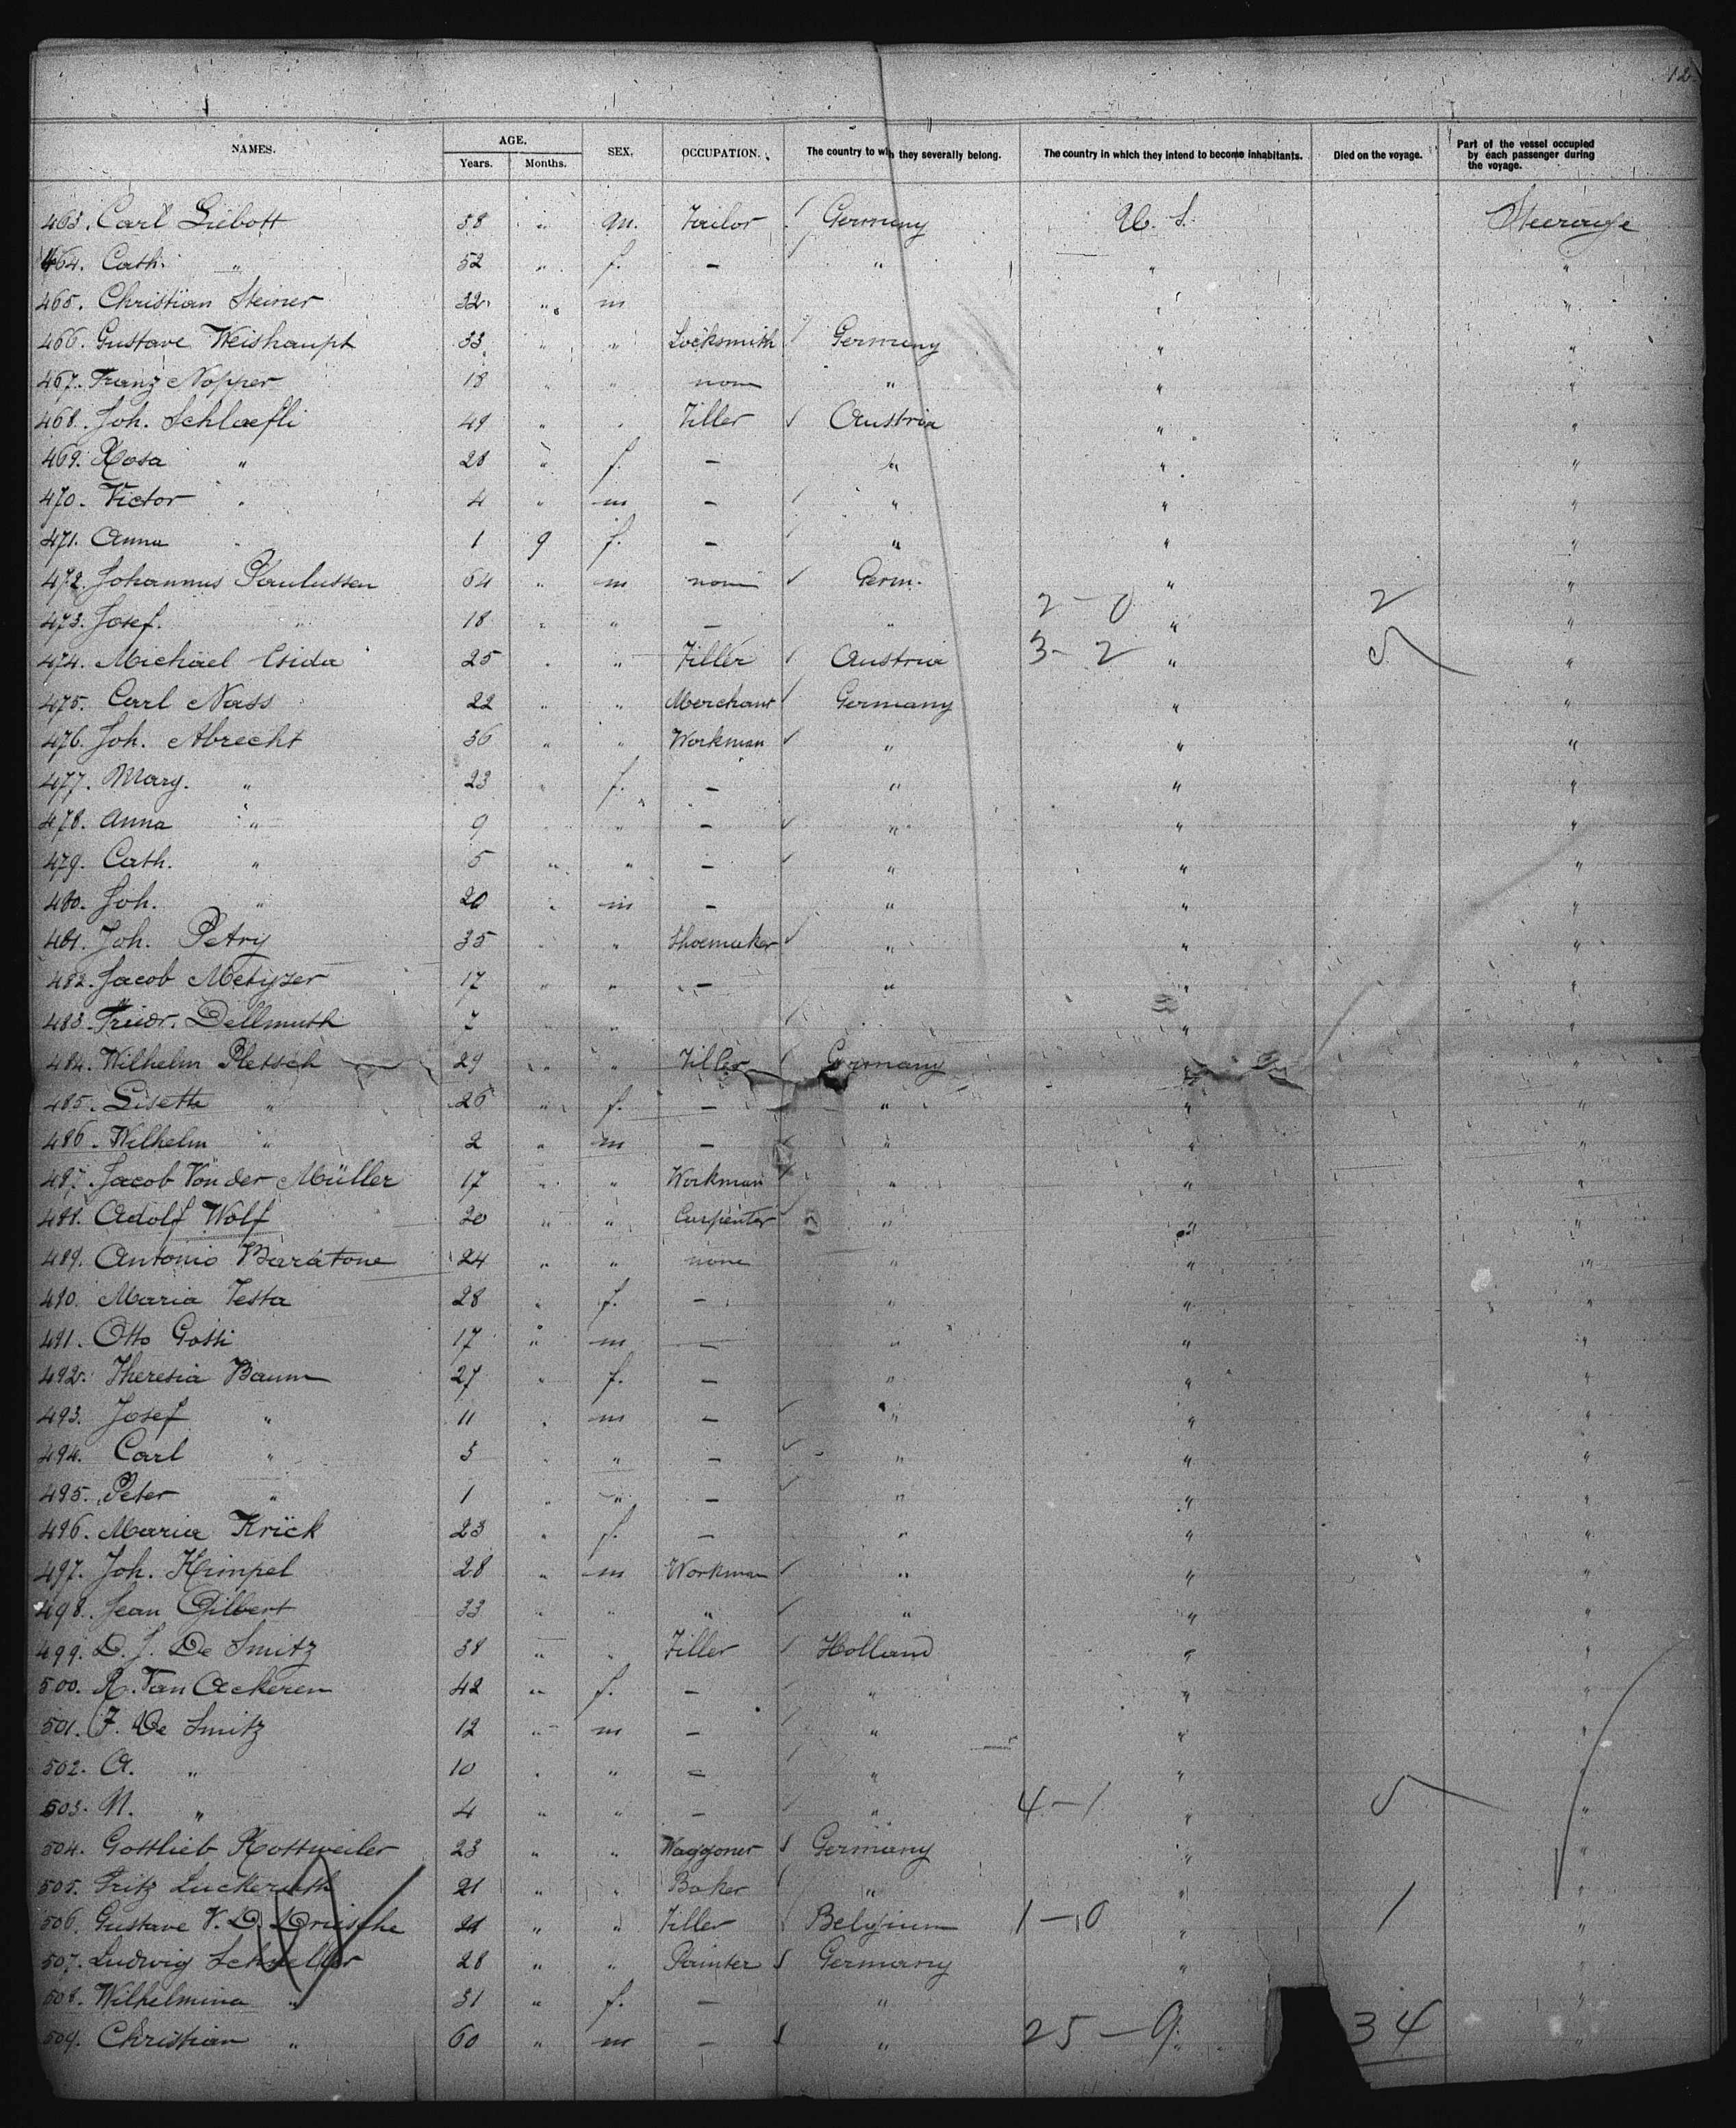 12.
NAMES. AGE. Years. Months. SEX. OCCUPATION. The country to wh they severally belong. The country in which they intend to become inhabitants. Died on the voyage. Part of the vessel occupied by each passenger during the voyage.
463. Carl Liebott 38 " m. Tailor Germany U. S. Steerage
464. Cath. " 52 " f. — " " "
465. Christian Steiner 32 " m " "
466. Gustave Weishaupt 33 " " Locksmith Germany " "
467. Franz Nopper 18 " " non " " "
468. Joh. Schlaefli 49 " " Tiller Austria " "
469. Rosa " 28 " f. — " " "
470. Victor " 4 " m — " " "
471. Anna " 1 9 f. — " " "
472. Johannus Paulussen 64 " m non Germ. " "
473. Josef. " 18 " " — " 2 — 0 " 2 "
474. Michael 25 " " Tiller Austria 3 - 2 " 5 "
475. Carl Nass 22 " " Merchant Germany " "
476. Joh. Abrecht 36 " " Workman " " "
477. Mary. " 23 " f. — " " "
478. Anna " 9 " " — " " "
479. Cath. " 5 " " — " " "
480. Joh. " 20 " m — " " "
481. Joh. Petry 35 " " Shoemaker " " "
482. Jacob Metyzer 17 " " — " " "
483. Friedr. Dellmuth 7 " " " "
484. Wilhelm Pletsch 29 " " Tiller Germany " "
485. Lisette " 26 " f. — " " "
486. Wilhelm " 2 " m — " " "
487. Jacob Von der Müller 17 " " Workman " " "
488. Adolf Wolf 20 " " Carpenter " " "
489. Antonio Baratone 24 " " none " " "
490. Maria Testa 28 " f. — " " "
491. Otto Gossi 17 " m — " " "
492. Theresia Baum 27 " f. — " " "
493. Josef " 11 " m — " " "
494. Carl " 3 " " — " " "
495. Peter " 1 " " — " " "
496. Maria Krick 23 " f. — " " "
497. Joh. Krimpel 28 " m Workman " " "
498. Jean Gilbert 33 " " " " " "
499. D. J. De Smitz 38 " " Tiller Holland " "
500. R. Van Ackeren 42 " f. — " " "
501. F. De Smitz 12 " m — " " "
502. A. " 10 " " — " " "
503. N. " 4 " " — " 4 - 1 " 5 "
504. Gottlieb Rottweiler 23 " " Waggoner Germany " "
505. Fritz Luckeruth 21 " " Baker " " "
506. Gustave V. D. Driesche 21 " " Tiller Belgium 1 — 0 " 1 "
507. Ludwig Scheller 28 " " Painter Germany " "
508. Wilhelmina " 31 " f. — " "
509. Christian " 60 " m — " 25 — 9 " 34 "